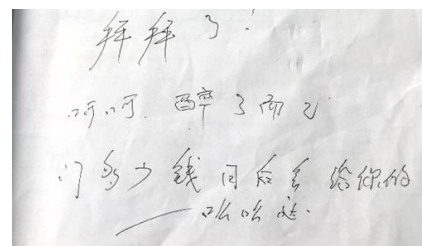 拜拜了!
呵呵. 醉了而已
多少钱后会给你的
——哈哈